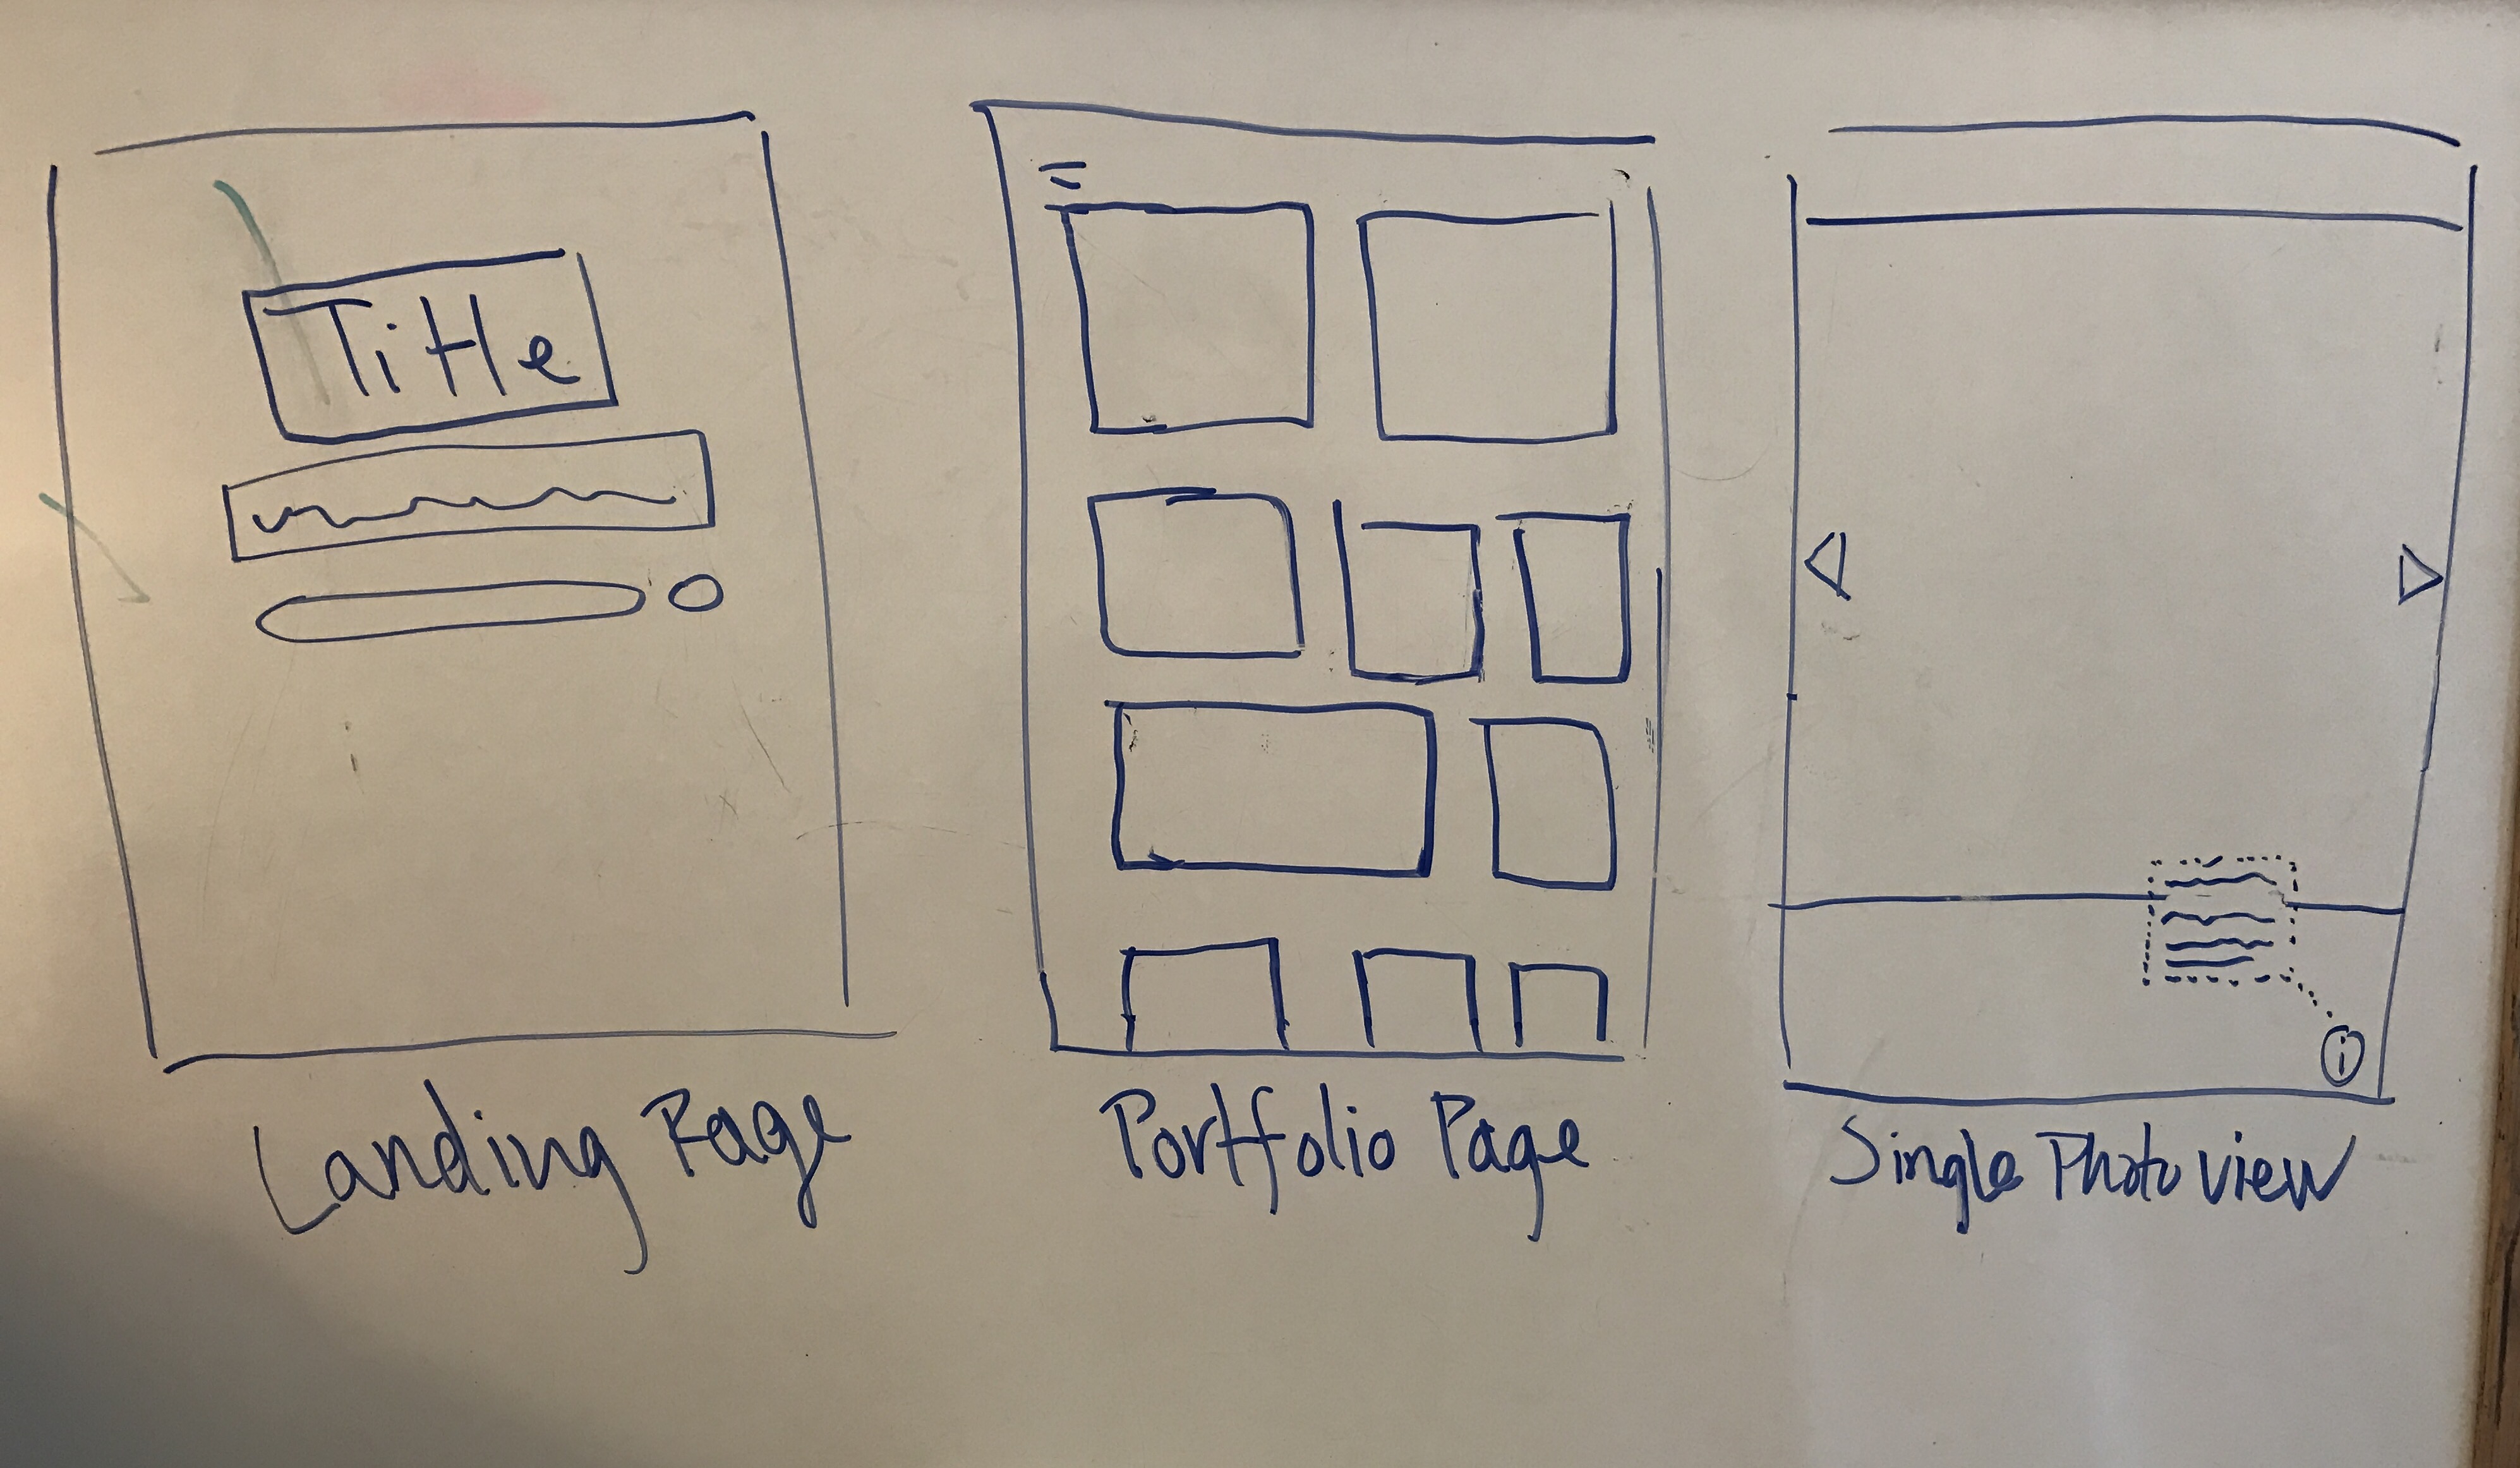 Title
Landing Page
Portfolio Page
i
Single Photo view